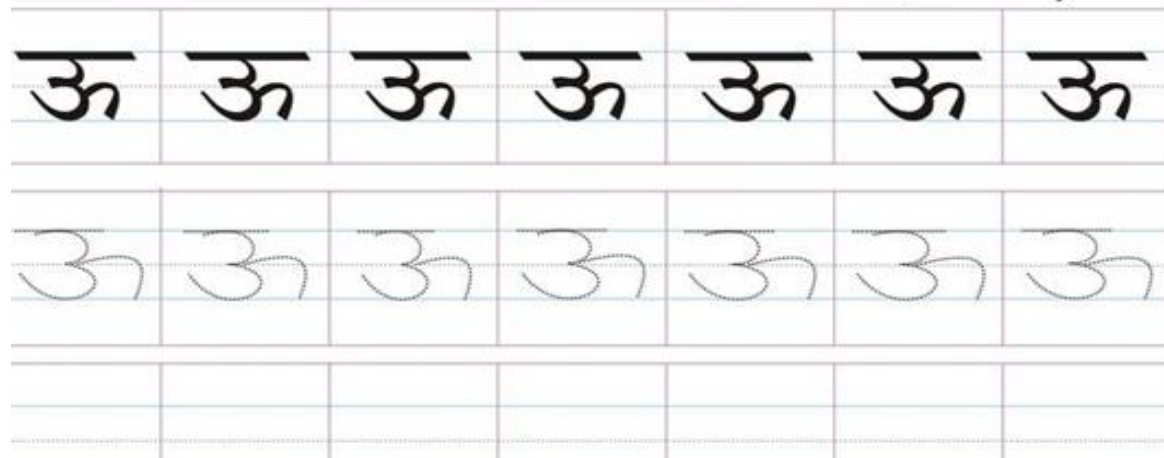 ऊ ऊ ऊ ऊ ऊ ऊ ऊ
ऊ ऊ ऊ ऊ ऊ ऊ ऊ